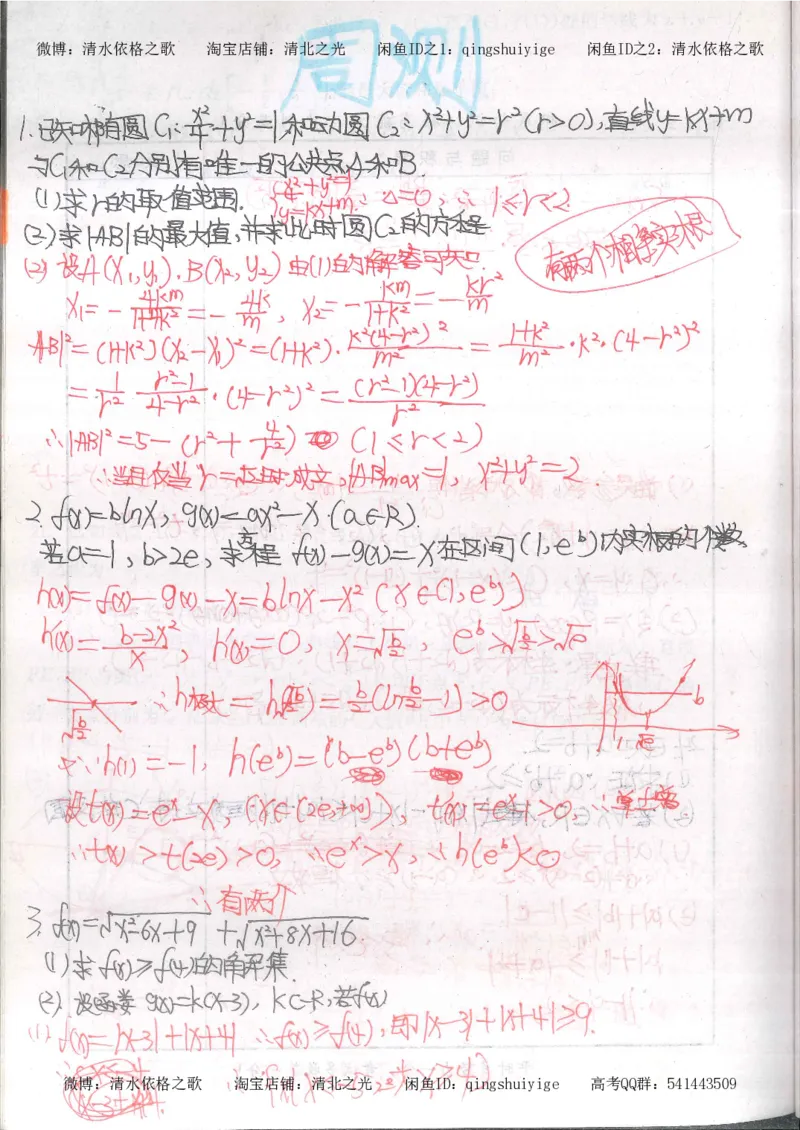 微博：清水依格之歌 淘宝店铺：清北之光 闲鱼ID之1：qingshuiyige 闲鱼ID之2：清水依格之歌
周测
1.已知椭圆C₁:x²/4+y²=1和动圆C₂:x²+y²=r²(r>0),直线y=kx+m
与C₁和C₂分别有唯一的公共点A和B.
(1)求r的取值范围. {x²/4+y²=1 y=kx+m ∵ △=0, ∴ 1≤r<2
(2)求|AB|的最大值,并求此时圆C₂的方程
有两个相等实根
(2)设A(x₁,y₁).B(x₂,y₂)由(1)的解答可知.
x₁=-4km/1+4k²=-4k/m, x₂=-km/1+k²=-kr²/m
|AB|²=(1+k²)(x₂-x₁)²=(1+k²)·k²(4-r²)²/m²=1+k²/m²·k²·(4-r²)²
=1/r²·r²-1/4-r²·(4-r²)²=(r²-1)(4-r²)/r²
∴|AB|²=5-(r²+4/r²) (1≤r<2)
∴当且仅当r=√2时成立,|AB|max=1, x²+y²=2
2.f(x)=blnx, g(x)=ax²-x.(a∈R).
若a=1,b>2e,求方程f(x)-g(x)=x在区间(1,eᵇ)内实根的个数.
h(x)=f(x)-g(x)-x=blnx-x² (x∈(1,eᵇ))
h'(x)=b-2x²/x, h'(x)=0, x=√b/2, eᵇ>√b/2>√e
√b/2 ∴h极大=h(√b/2)=b/2(lnb/2-1)>0
b
1 √e
又∵h(1)=-1, h(eᵇ)=(b-eᵇ)(b+eᵇ)
设t(x)=eˣ-x, (x∈(2e,+∞)), t'(x)=eˣ-1>0, ∴单增
∴t(x)>t(2e)>0, ∴eˣ>x, ∴h(eᵇ)<0
∴有两个
3.f(x)=√x²-6x+9+√x²+8x+16.
(1)求f(x)≥f(4)的解集
(2).设函数g(x)=k(x-3), k∈R,若f(x)
(1)f(x)=|x-3|+|x+4| ∴f(x)≥f(4),即|x-3|+|x+4|≥9.
微博：清水依格之歌 淘宝店铺：清北之光 闲鱼ID：qingshuiyige 高考QQ群：541443509